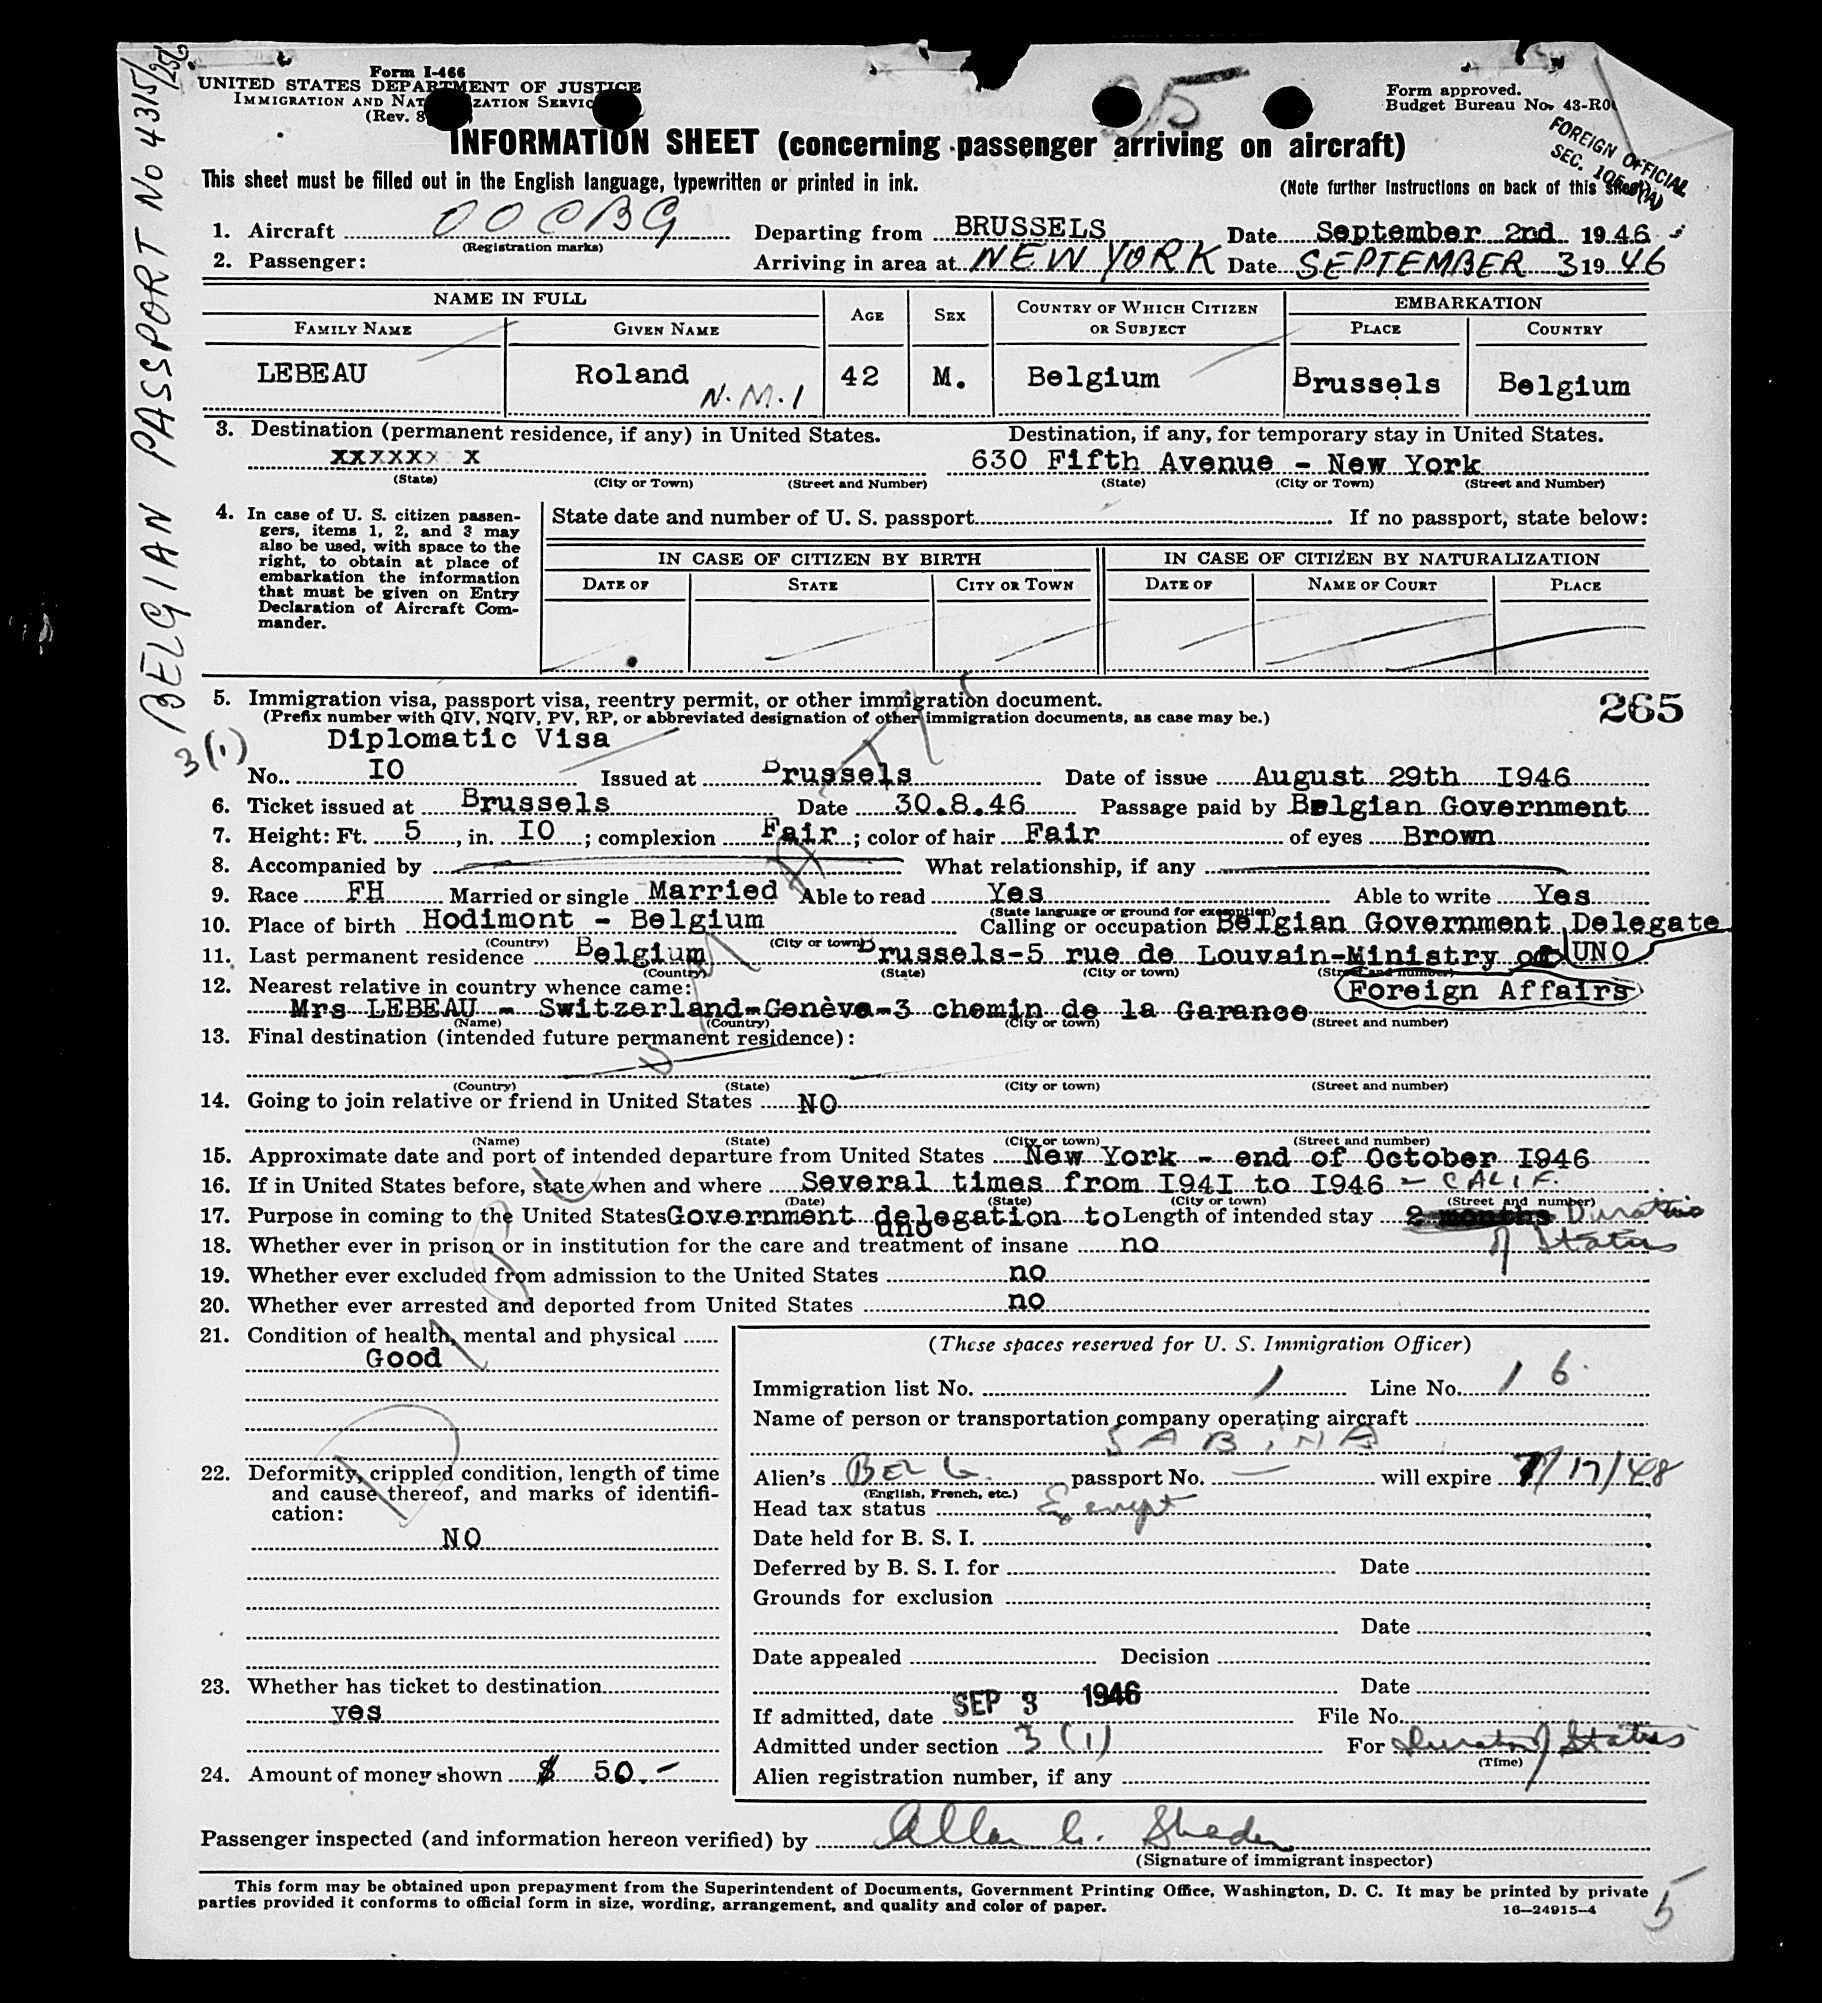 BELGIAN PASSPORT No 4315/
Form I-466
UNITED STATES DEPARTMENT OF JUSTICE
IMMIGRATION AND NAT ZATION SERVIC
(Rev. 8
Form approved.
Budget Bureau No. 43-R0
INFORMATION SHEET (concerning passenger arriving on aircraft)
FOREIGN OFFICIAL
SEC.
This sheet must be filled out in the English language, typewritten or printed in ink.
(Note further instructions on back of this sheet)
1. Aircraft OOCBG Departing from BRUSSELS Date September 2nd 1946
(Registration marks)
2. Passenger: Arriving in area at NEW YORK Date SEPTEMBER 3 1946
NAME IN FULL AGE SEX COUNTRY OF WHICH CITIZEN OR SUBJECT EMBARKATION
FAMILY NAME GIVEN NAME PLACE COUNTRY
LEBEAU Roland N.M.I 42 M. Belgium Brussels Belgium
3. Destination (permanent residence, if any) in United States. Destination, if any, for temporary stay in United States.
xxxxxx x 630 Fifth Avenue - New York
(State) (City or Town) (Street and Number) (State) (City or Town) (Street and Number)
4. In case of U. S. citizen passen-
gers, items 1, 2, and 3 may
also be used, with space to the
right, to obtain at place of
embarkation the information
that must be given on Entry
Declaration of Aircraft Com-
mander.
State date and number of U. S. passport If no passport, state below:
IN CASE OF CITIZEN BY BIRTH IN CASE OF CITIZEN BY NATURALIZATION
DATE OF STATE CITY OR TOWN DATE OF NAME OF COURT PLACE
5. Immigration visa, passport visa, reentry permit, or other immigration document. 265
(Prefix number with QIV, NQIV, PV, RP, or abbreviated designation of other immigration documents, as case may be.)
3(1) Diplomatic Visa
No. IO Issued at Brussels Date of issue August 29th I946
6. Ticket issued at Brussels Date 30.8.46 Passage paid by Belgian Government
7. Height: Ft. 5, in. IO; complexion Fair; color of hair Fair of eyes Brown
8. Accompanied by What relationship, if any
9. Race FH Married or single Married Able to read Yes Able to write Yes
(State language or ground for exemption)
10. Place of birth Hodimont - Belgium Calling or occupation Belgian Government Delegate
(Country) (City or town)
11. Last permanent residence Belgium Brussels-5 rue de Louvain-Ministry of UNO
(Country) (State) (City or town) (Street and number)
12. Nearest relative in country whence came: Foreign Affairs
Mrs LEBEAU - Switzerland-Genève-3 chemin de la Garance
(Name) (Country) (City or town) (Street and number)
13. Final destination (intended future permanent residence):
(Country) (State) (City or town) (Street and number)
14. Going to join relative or friend in United States NO
(Name) (State) (City or town) (Street and number)
15. Approximate date and port of intended departure from United States New York - end of October I946
16. If in United States before, state when and where Several times from I94I to I946 - CALIF.
(Date) (State) (City or town) (Street and number)
17. Purpose in coming to the United States Government delegation to uno Length of intended stay 2 months Duration
of Status
18. Whether ever in prison or in institution for the care and treatment of insane no
19. Whether ever excluded from admission to the United States no
20. Whether ever arrested and deported from United States no
21. Condition of health, mental and physical
Good
22. Deformity, crippled condition, length of time
and cause thereof, and marks of identifi-
cation:
NO
23. Whether has ticket to destination
yes
24. Amount of money shown $ 50.-
(These spaces reserved for U. S. Immigration Officer)
Immigration list No. 1 Line No. 16
Name of person or transportation company operating aircraft
SABENA
Alien's BELG. passport No. — will expire 7/17/48
(English, French, etc.)
Head tax status Exempt
Date held for B. S. I.
Deferred by B. S. I. for Date
Grounds for exclusion
Date
Date appealed Decision
Date
If admitted, date SEP 3 1946 File No.
Admitted under section 3(1) For Duration of Status
(Time)
Alien registration number, if any
Passenger inspected (and information hereon verified) by Allan
(Signature of immigrant inspector)
This form may be obtained upon prepayment from the Superintendent of Documents, Government Printing Office, Washington, D. C. It may be printed by private
parties provided it conforms to official form in size, wording, arrangement, and quality and color of paper.
16—24915-4
5